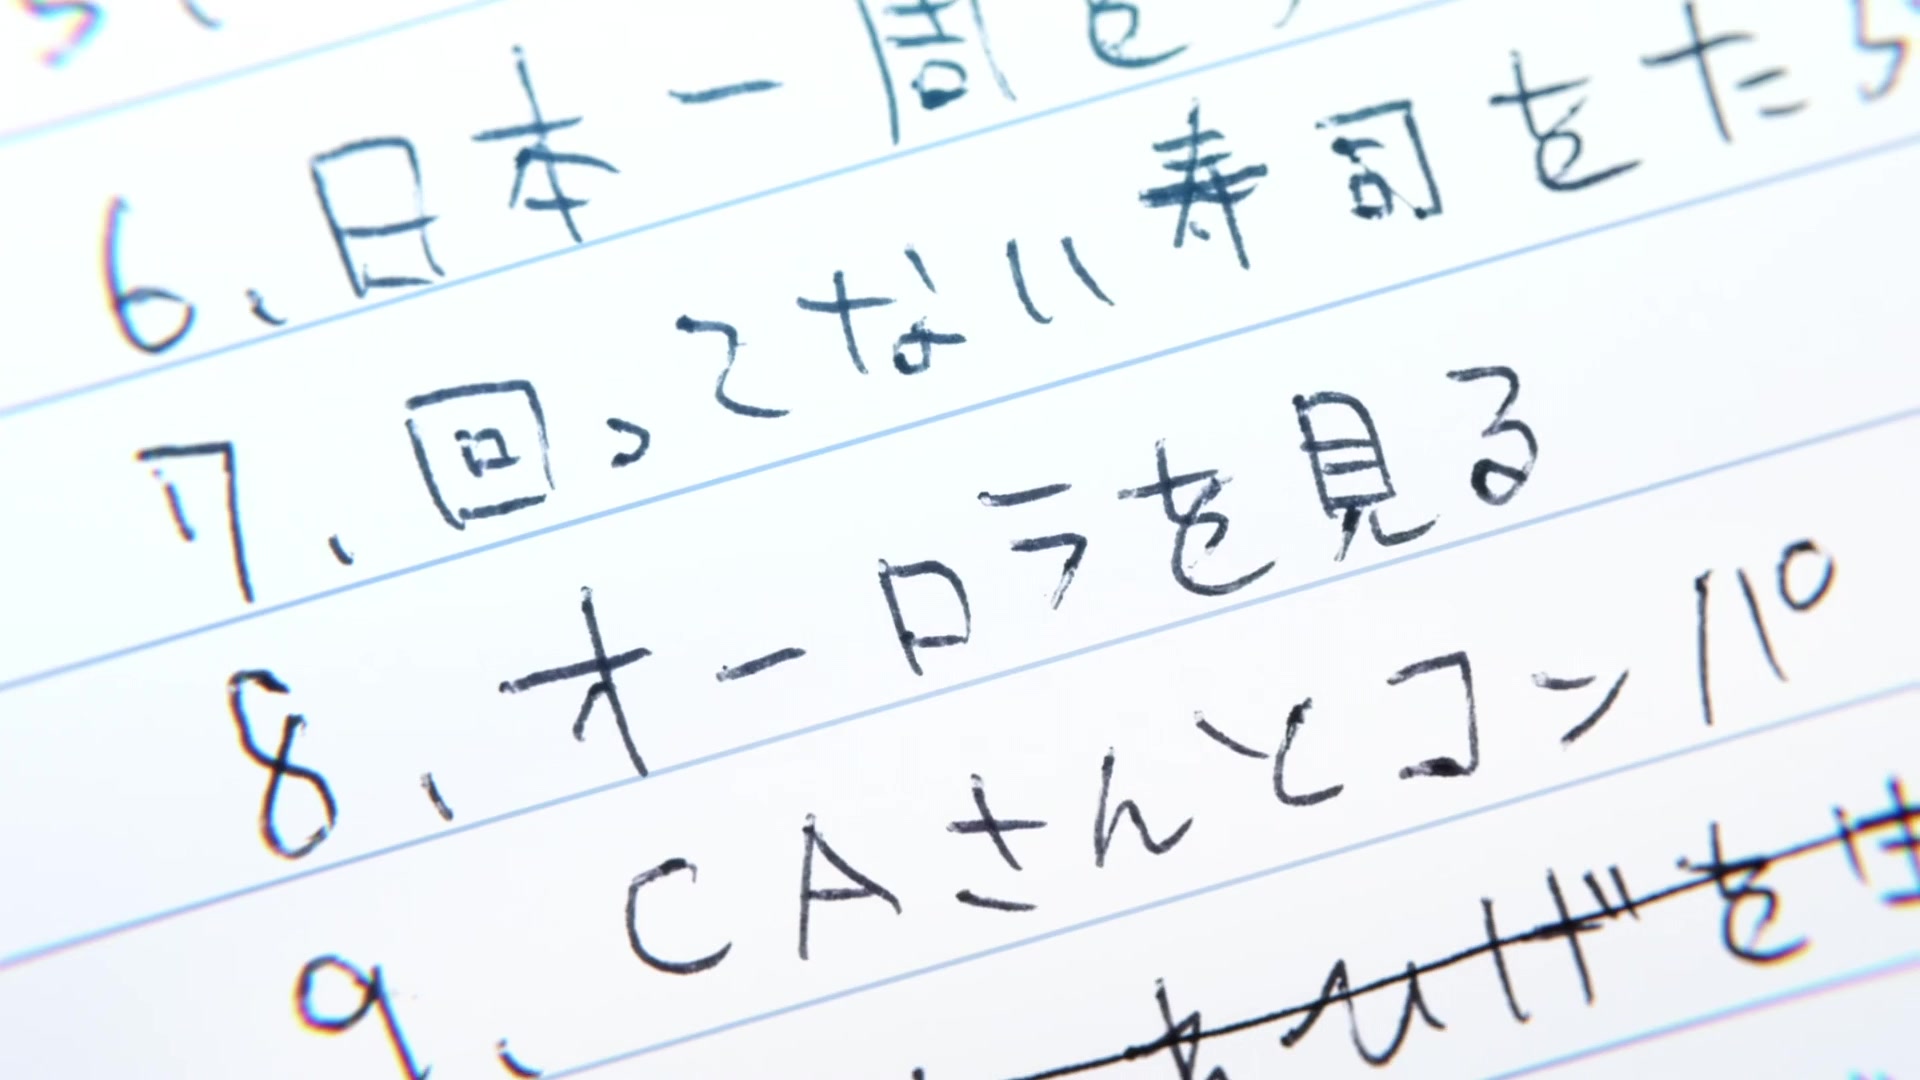 6、日本一周を
7、回ってない寿司をたら
8、オーロラを見る
9、CAさんとコンパ
ひげをは